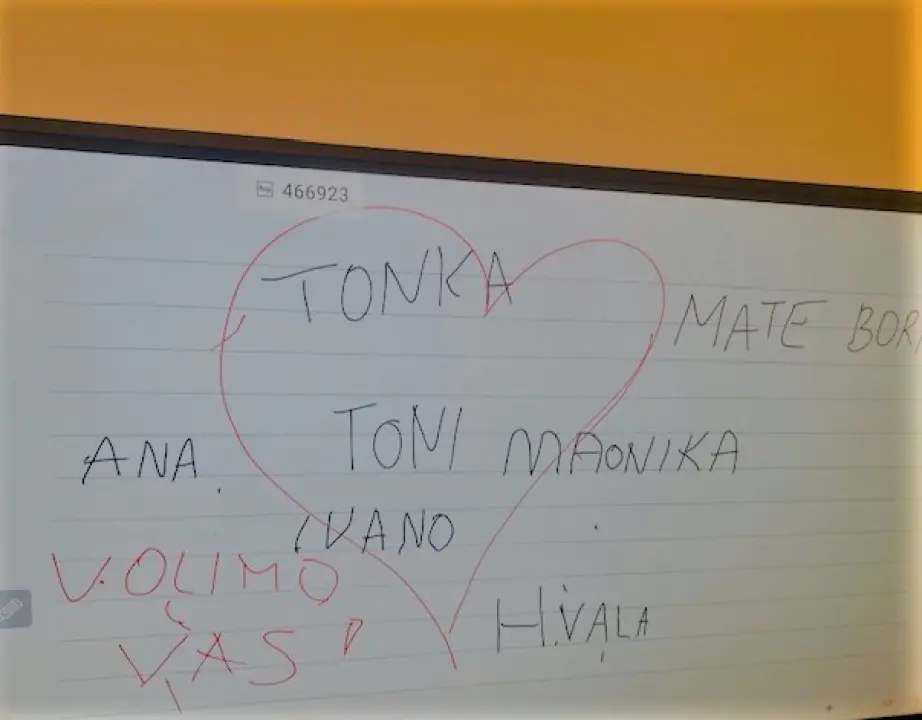 466923
TONKA
MATE BOR
TONI MAONIKA
ANA.
IVANO
VOLIMO
VAS!
HVALA